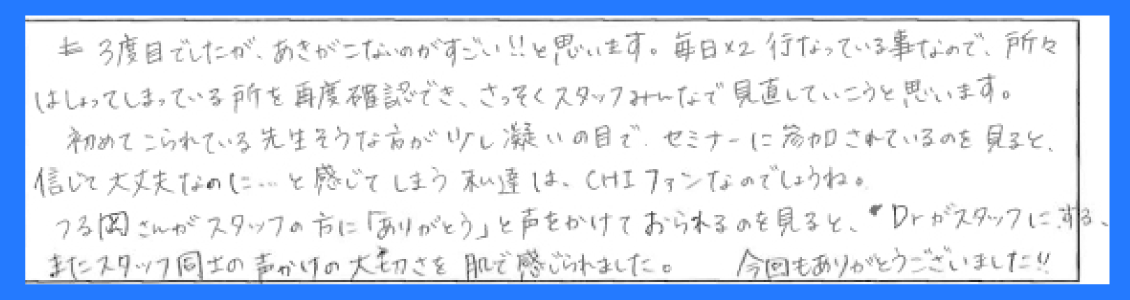 も 3度目でしたが、あきがこないのがすごい!!と思います。毎日×2 行なっている事なので、所々
はしょってしまっている所を再度確認でき、さっそくスタッフみんなで見直していこうと思います。
初めてこられている先生そうな方が少し凝いの目で、セミナーに参加されているのを見ると、
信じて大丈夫なのに…と感じてしまう私達は、CHIファンなのでしょうね。
つる岡さんがスタッフの方に「ありがとう」と声をかけておられるのを見ると、Drがスタッフにする、
またスタッフ同士の声かけの大切さを肌で感じられました。 今回もありがとうございました!!